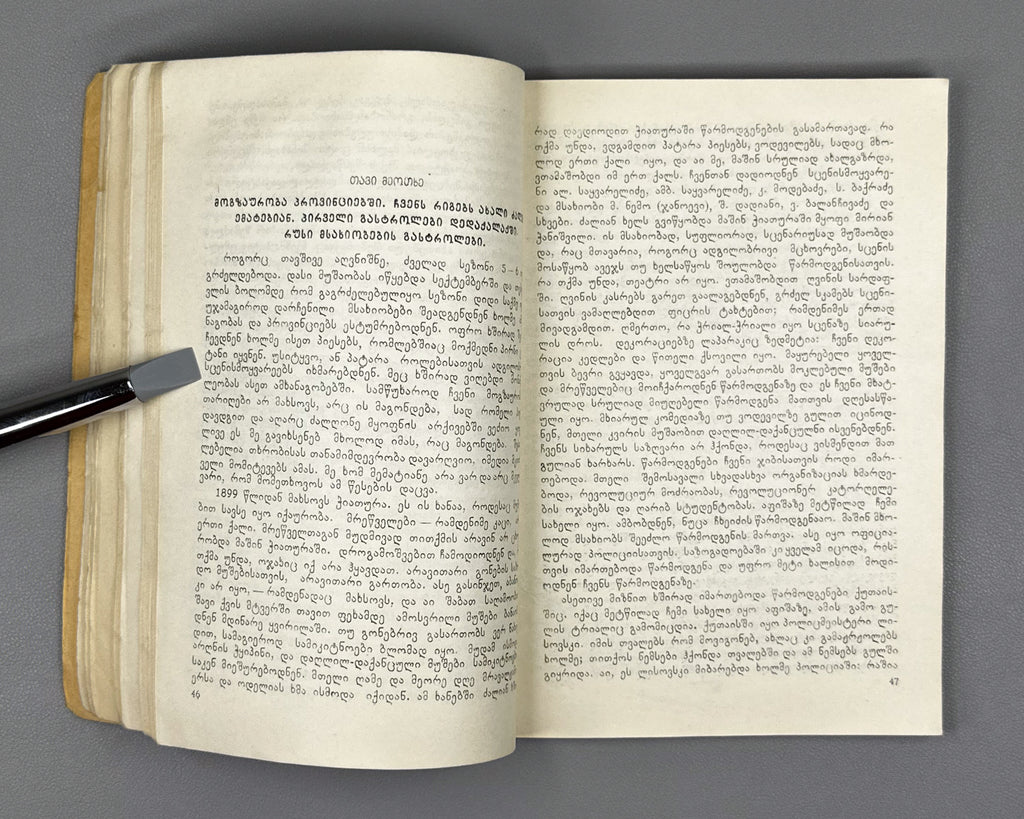 თავი მეოთხე
მოგზაურობა პროვინციებში. ჩვენს რიგებს ახალი
ემატებიან. პირველი გასტროლები დედაქალაქში.
რუსი მსახიობების გასტროლები.
როგორც თავშივე აღვნიშნე, ძველად სეზონი 5—6
გრძელდებოდა. დასი მუშაობას იწყებდა სექტემბერში და
ვლის ბოლომდე რომ გაგრძელებულიყო სეზონი დიდი
უჯამაგიროდ დარჩენილი მსახიობები შეადგენდნენ ხოლმე
ნაგობას და პროვინციებს ესტუმრებოდნენ. ოფრო ხშირად
ჩევდნენ ხოლმე ისეთ პიესებს, რომლებშიაც მოქმედნი პირნი
ტანი იყვნენ. უსიტყვო, ან პატარა როლებისათვის
სცენისმოყვარეებს იხმარებდნენ. მეც ხშირად ვიღებდი
ლეობას ასეთ ამხანაგობებში. სამწუხაროდ ჩვენი
თარიღები არ მახსოვს, არც ის მაგონდება, სად რომელი
დავდგით და აღარც ძალღონე მყოფნის არქივებში ვეძიო
ლივე ეს მე გავიხსენებ მხოლოდ იმას, რაც მაგონდება.
ლებელია თხრობისას თანამიმდევრობა დავარღვიო. იმედია
ველი მომიტევებს ამას. მე ხომ მემატიანე არა ვარ და არც
ვარი, რომ მომეთხოვოს ამ წესების დაცვა.
1899 წლიდან მახსოვს ჭიათურა. ეს ის ხანაა, როდესაც
ბით სავსე იყო იქაურობა. მრეწველები — რამდენიმე კაცი,
ერთი ქალი. მრეწველთაგან მუდმივად თითქმის არავინ არ
რობდა მაშინ ჭიათურაში. დროგამოშვებით ჩამოდიოდნენ და,
თქმა უნდა, ოჯახიც იქ არა ჰყავდათ. არავითარი გონების
დო მუშებისათვის, არავითარი გართობა. ასე გასინჯეთ,
კი არ იყო, — რამდენადაც მახსოვს, და აი შაბათ
შავი ქვის მტვერში თავით ფეხამდე ამოსვრილი მუშები
დნენ მდინარე ყვირილაში. თუ გონებრივ გასართობს ვერ
დით, სამაგიეროდ სამიკიტნოები ბლომად იყო. მუდამ
არღნის ჭყიპინი, და დაღლილ-დაქანცული მუშები
საკენ მიეშურებოდნენ. მთელი ღამე და მეორე დღე
ერსა და ოდელიას ხმა ისმოდა იქიდან. ამ ხანებში ძალიან
46
რად დავდიოდით ჭიათურაში წარმოდგენების გასამართავად. რა
თქმა უნდა, ვდგამდით პატარა პიესებს, ვოდევილებს, სადაც მხო-
ლოდ ერთი ქალი იყო, და აი მე, მაშინ სრულიად ახალგაზრდა,
ვთამაშობდი იმ ერთ ქალს. ჩვენთან დადიოდნენ სცენისმოყვარე-
ნი ალ. საყვარელიძე, ამბ. საყვარელიძე, კ. მოდებაძე, ს. ბაქრაძე
და მსახიობი მ. ნემო (ჯანოევი), შ. დადიანი, ვ. ბალანჩივაძე და
სხვები. ძალიან ხელს გვიწყობდა მაშინ ჭიათურაში მყოფი მირიან
ჭანიშვილი. ის მსახიობად, სუფლიორად, სცენარიუსად მუშაობდა
და, რაც მთავარია, როგორც ადგილობრივი მცხოვრები, სცენის
მოსაწყობ ავეჯს თუ ხელსაწყოს შოულობდა წარმოდგენისათვის.
რა თქმა უნდა, თეატრი არ იყო. ვთამაშობდით ღვინის სარდაფ-
ში. ღვინის კასრებს გარეთ გაალაგებდნენ, გრძელ სკამებს სცენი-
სათვის ვამაღლებდით ფიცრის ტახტებით; რამდენიმეს ერთად
მივადგამდით. ღმერთო, რა ჭრიალ-ჭრიალი იყო სცენაზე სიარუ-
ლის დროს. დეკორაციებზე ლაპარაკიც ზედმეტია: ჩვენი დეკო-
რაცია კედლები და წითელი ქსოვილი იყო. მაყურებელი ყოველ-
თვის ბევრი გვყავდა, ყოველგვარ გასართობს მოკლებული მუშები
და მრეწველებიც მოიჩქაროდნენ წარმოდგენაზე და ეს ჩვენი მხატ-
ვრულად სრულიად მიუღებელი წარმოდგენა მათთვის დღესასწა-
ული იყო. მხიარულ კომედიაზე თუ ვოდევილზე გულით იცინოდ-
ნენ, მთელი კვირის მუშაობით დაღლილ-დაქანცულნი ისვენებდნენ.
ჩვენს სიხარულს საზღვარი არ ჰქონდა, როდესაც ვისმენდით მათ
გულიან ხარხარს. წარმოდგენები ჩვენი ჯიბისათვის როდი იმარ-
თებოდა. მთელი შემოსავალი სხვადასხვა ორგანიზაციას ხმარდე-
ბოდა, რევოლუციურ მოძრაობას, რევოლუციონერ კატორღელე-
ბის ოჯახებს და ღარიბ სტუდენტობას. აფიშაზე მეტწილად ჩემი
სახელი იყო. ამბობდნენ, ნუცა ჩხეიძის წარმოდგენააო. მაშინ მხო-
ლოდ მსახიობს შეეძლო წარმოდგენის მართვა. ასე იყო ოფიცია-
ლურად პოლიციისათვის. საზოგადოებაში კი ყველამ იცოდა, რის-
თვის იმართებოდა წარმოდგენა და უფრო მეტი ხალისით მოდი-
ოდნენ ჩვენს წარმოდგენაზე.
ასეთივე მიზნით ხშირად იმართებოდა წარმოდგენები ქუთაის-
შიც. იქაც მეტწილად ჩემი სახელი იყო აფიშაზე. ამის გამო გუ-
ლის ტრიალიც გამომიცდია. ქუთაისში იყო პოლიცმეისტერი ლი-
სოვსკი. იმის თვალებს რომ მოვიგონებ, ახლაც კი გამაჟრჟოლებს
ხოლმე; თითქოს ნემსები ჰქონდა თვალებში და ამ ნემსებს გულში
გიყრიდა. აი, ეს ლისოვსკი მიბარებდა ხოლმე პოლიციაში: რაშია
47